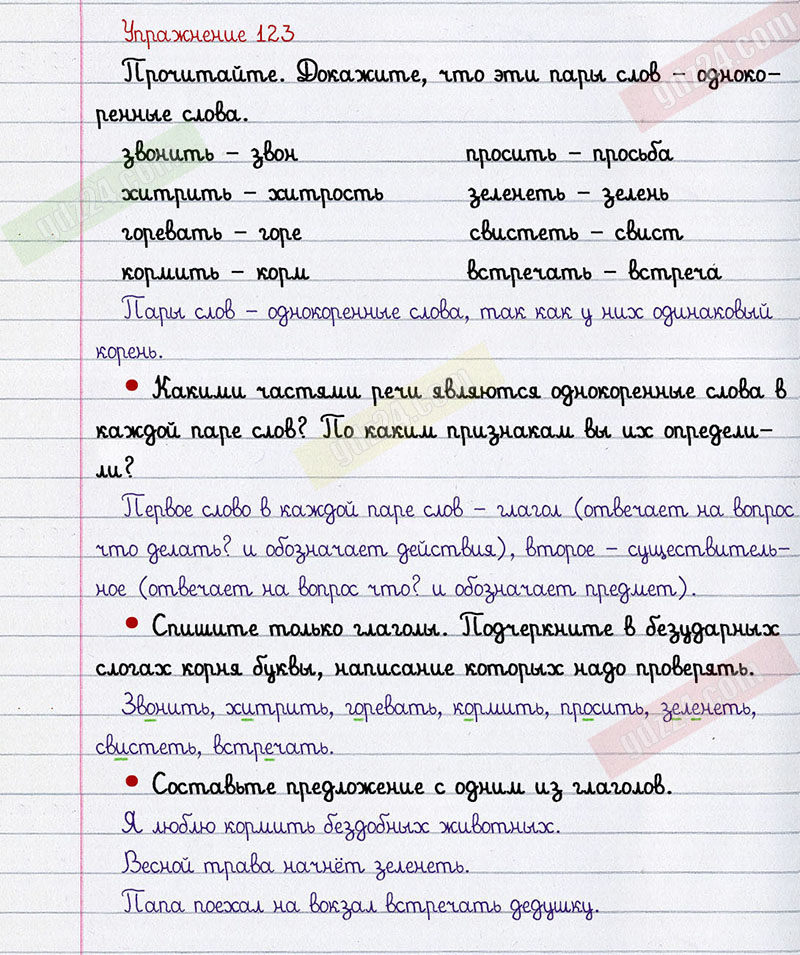 Упражнение 123
Прочитайте. Докажите, что эти пары слов – одноко-
ренные слова.
звонить – звон просить – просьба
хитрить – хитрость зеленеть – зелень
горевать – горе свистеть – свист
кормить – корм встречать – встреча
Пары слов – однокоренные слова, так как у них одинаковый
корень.
• Какими частями речи являются однокоренные слова в
каждой паре слов? По каким признакам вы их определи-
ли?
Первое слово в каждой паре слов – глагол (отвечает на вопрос
что делать? и обозначает действия), второе – существитель-
ное (отвечает на вопрос что? и обозначает предмет).
• Спишите только глаголы. Подчеркните в безударных
слогах корня буквы, написание которых надо проверять.
Звонить, хитрить, горевать, кормить, просить, зеленеть,
свистеть, встречать.
• Составьте предложение с одним из глаголов.
Я люблю кормить бездобных животных.
Весной трава начнёт зеленеть.
Папа поехал на вокзал встречать дедушку.
gdz24.com
gdz24.com
gdz24.com
gdz24.com